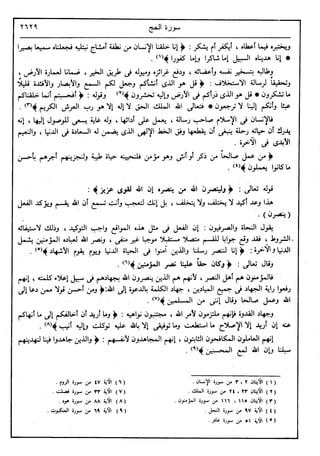 سورة الحج
٢٦٢٩
ويختبره فيما أعطاه ، أيكفر أم يشكر : ﴿ إنا خلقنا الإنسان من نطفة أمشاج نبتليه فجعلناه سميعا بصيرا
إنا هديناه السبيل إما شاكرا وإما كفورا ﴾(١) .
وطالبه بتسخير نفسه وأعضائه ، ودفع غرائزه وميوله فى طريق الخير ، ضمانا لعمارة الأرض ،
وتحقيقاً لرسالة الاستخلاف : ﴿ قل هو الذى أنشأكم وجعل لكم السمع والأبصار والأفئدة قليلاً
ما تشكرون * قل هو الذى ذرأكم فى الأرض وإليه تحشرون ﴾(٢) وقوله : ﴿ أفحسبتم أنما خلقناكم
عبثا وأنكم إلينا لا ترجعون * فتعالى الله الملك الحق لا إله إلا هو رب العرش الكريم ﴾(٣) .
فالإنسان فى الإسلام صاحب رسالة ، يعمل على أدائها ، وله غاية يسعى للوصول إليها ، إنه
يدرك أن حياته رحلة ينبغى أن يقطعها وفق الخط الإلهى الذى يضمن له السعادة فى الدنيا ، والنعيم
الأبدى فى الآخرة .
﴿ من عمل صالحاً من ذكر أو أنثى وهو مؤمن فلنحيينه حياة طيبة ولنجزينهم أجرهم بأحسن
ما كانوا يعملون ﴾(٤) .
قوله تعالى : ﴿ ولينصرن الله من ينصره إن الله لقوى عزيز ﴾ :
هذا وعد أكيد لا يختلف ولا يتخلف ، بل إنك لتعجب وأنت تسمع أن الله يقسم ويؤكد الفعل
( ينصرن ) .
يقول النحاة والصرفيون : إن الفعل فى مثل هذه المواقع واجب التوكيد ، وذلك لاستيفائه
الشروط ، فقد وقع جوابا للقسم متصلا مستقبلا موجبا غير منفى ، ونصر الله لعباده المؤمنين يشمل
الدنيا والآخرة : ﴿ إنا لننصر رسلنا والذين آمنوا فى الحياة الدنيا ويوم يقوم الأشهاد ﴾(٥) .
وقال تعالى : ﴿ وكان حقاً علينا نصر المؤمنين ﴾(٦) .
فالمؤمنون هم أهل النصر ، لأنهم هم الذين ينصرون الله بجهادهم فى سبيل إعلاء كلمته ، إنهم
رفعوا راية الجهاد فى جميع الميادين ، جهاد الكلمة بالدعوة إلى الله: ﴿ ومن أحسن قولا ممن دعا إلى
الله وعمل صالحا وقال إننى من المسلمين ﴾(٧) .
وجهاد القدوة فإنهم ملتزمون لأمر الله ، مجتنبون نواهيه : ﴿ وما أريد أن أخالفكم إلى ما أنهاكم
عنه إن أريد إلا الإصلاح ما استطعت وما توفيقى إلا بالله عليه توكلت وإليه أنيب ﴾(٨) .
إنهم العاملون المكافحون الثابتون ، إنهم المجاهدون لأنفسهم : ﴿ والذين جاهدوا فينا لنهدينهم
سبلنا وإن الله لمع المحسنين ﴾(٩) .
(١) الآيتان ٢ ، ٣ من سورة الإنسان .
(٢) الآيتان ٢٣ ، ٢٤ من سورة الملك .
(٣) الآيتان ١١٥ ، ١١٦ من سورة المؤمنون .
(٤) الآية ٩٧ من سورة النحل .
(٥) الآية ٥١ من سورة غافر .
(٦) الآية ٤٧ من سورة الروم .
(٧) الآية ٣٣ من سورة فصلت .
(٨) الآية ٨٨ من سورة هود .
(٩) الآية ٦٩ من سورة العنكبوت .